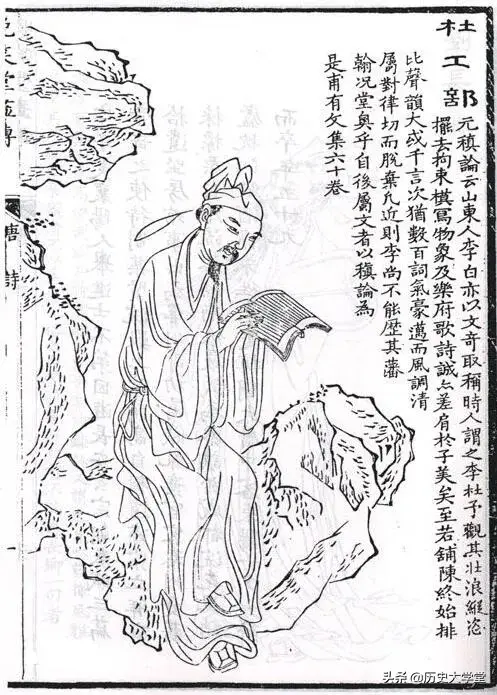 杜工部
元稹論云山東人李白亦以文奇取稱時人謂之李杜予觀其壯浪縱恣
擺去拘束模冩物象及樂府歌詩誠亦差肩於子美矣至若鋪陳終始排
比聲韻大或千言次猶數百詞氣豪邁而風調清
屬對律切而脫棄凡近則李尚不能歷其藩
翰况堂奧乎自後屬文者以稹論為
是甫有文集六十卷
唐詩
一
头条 @历史大学堂